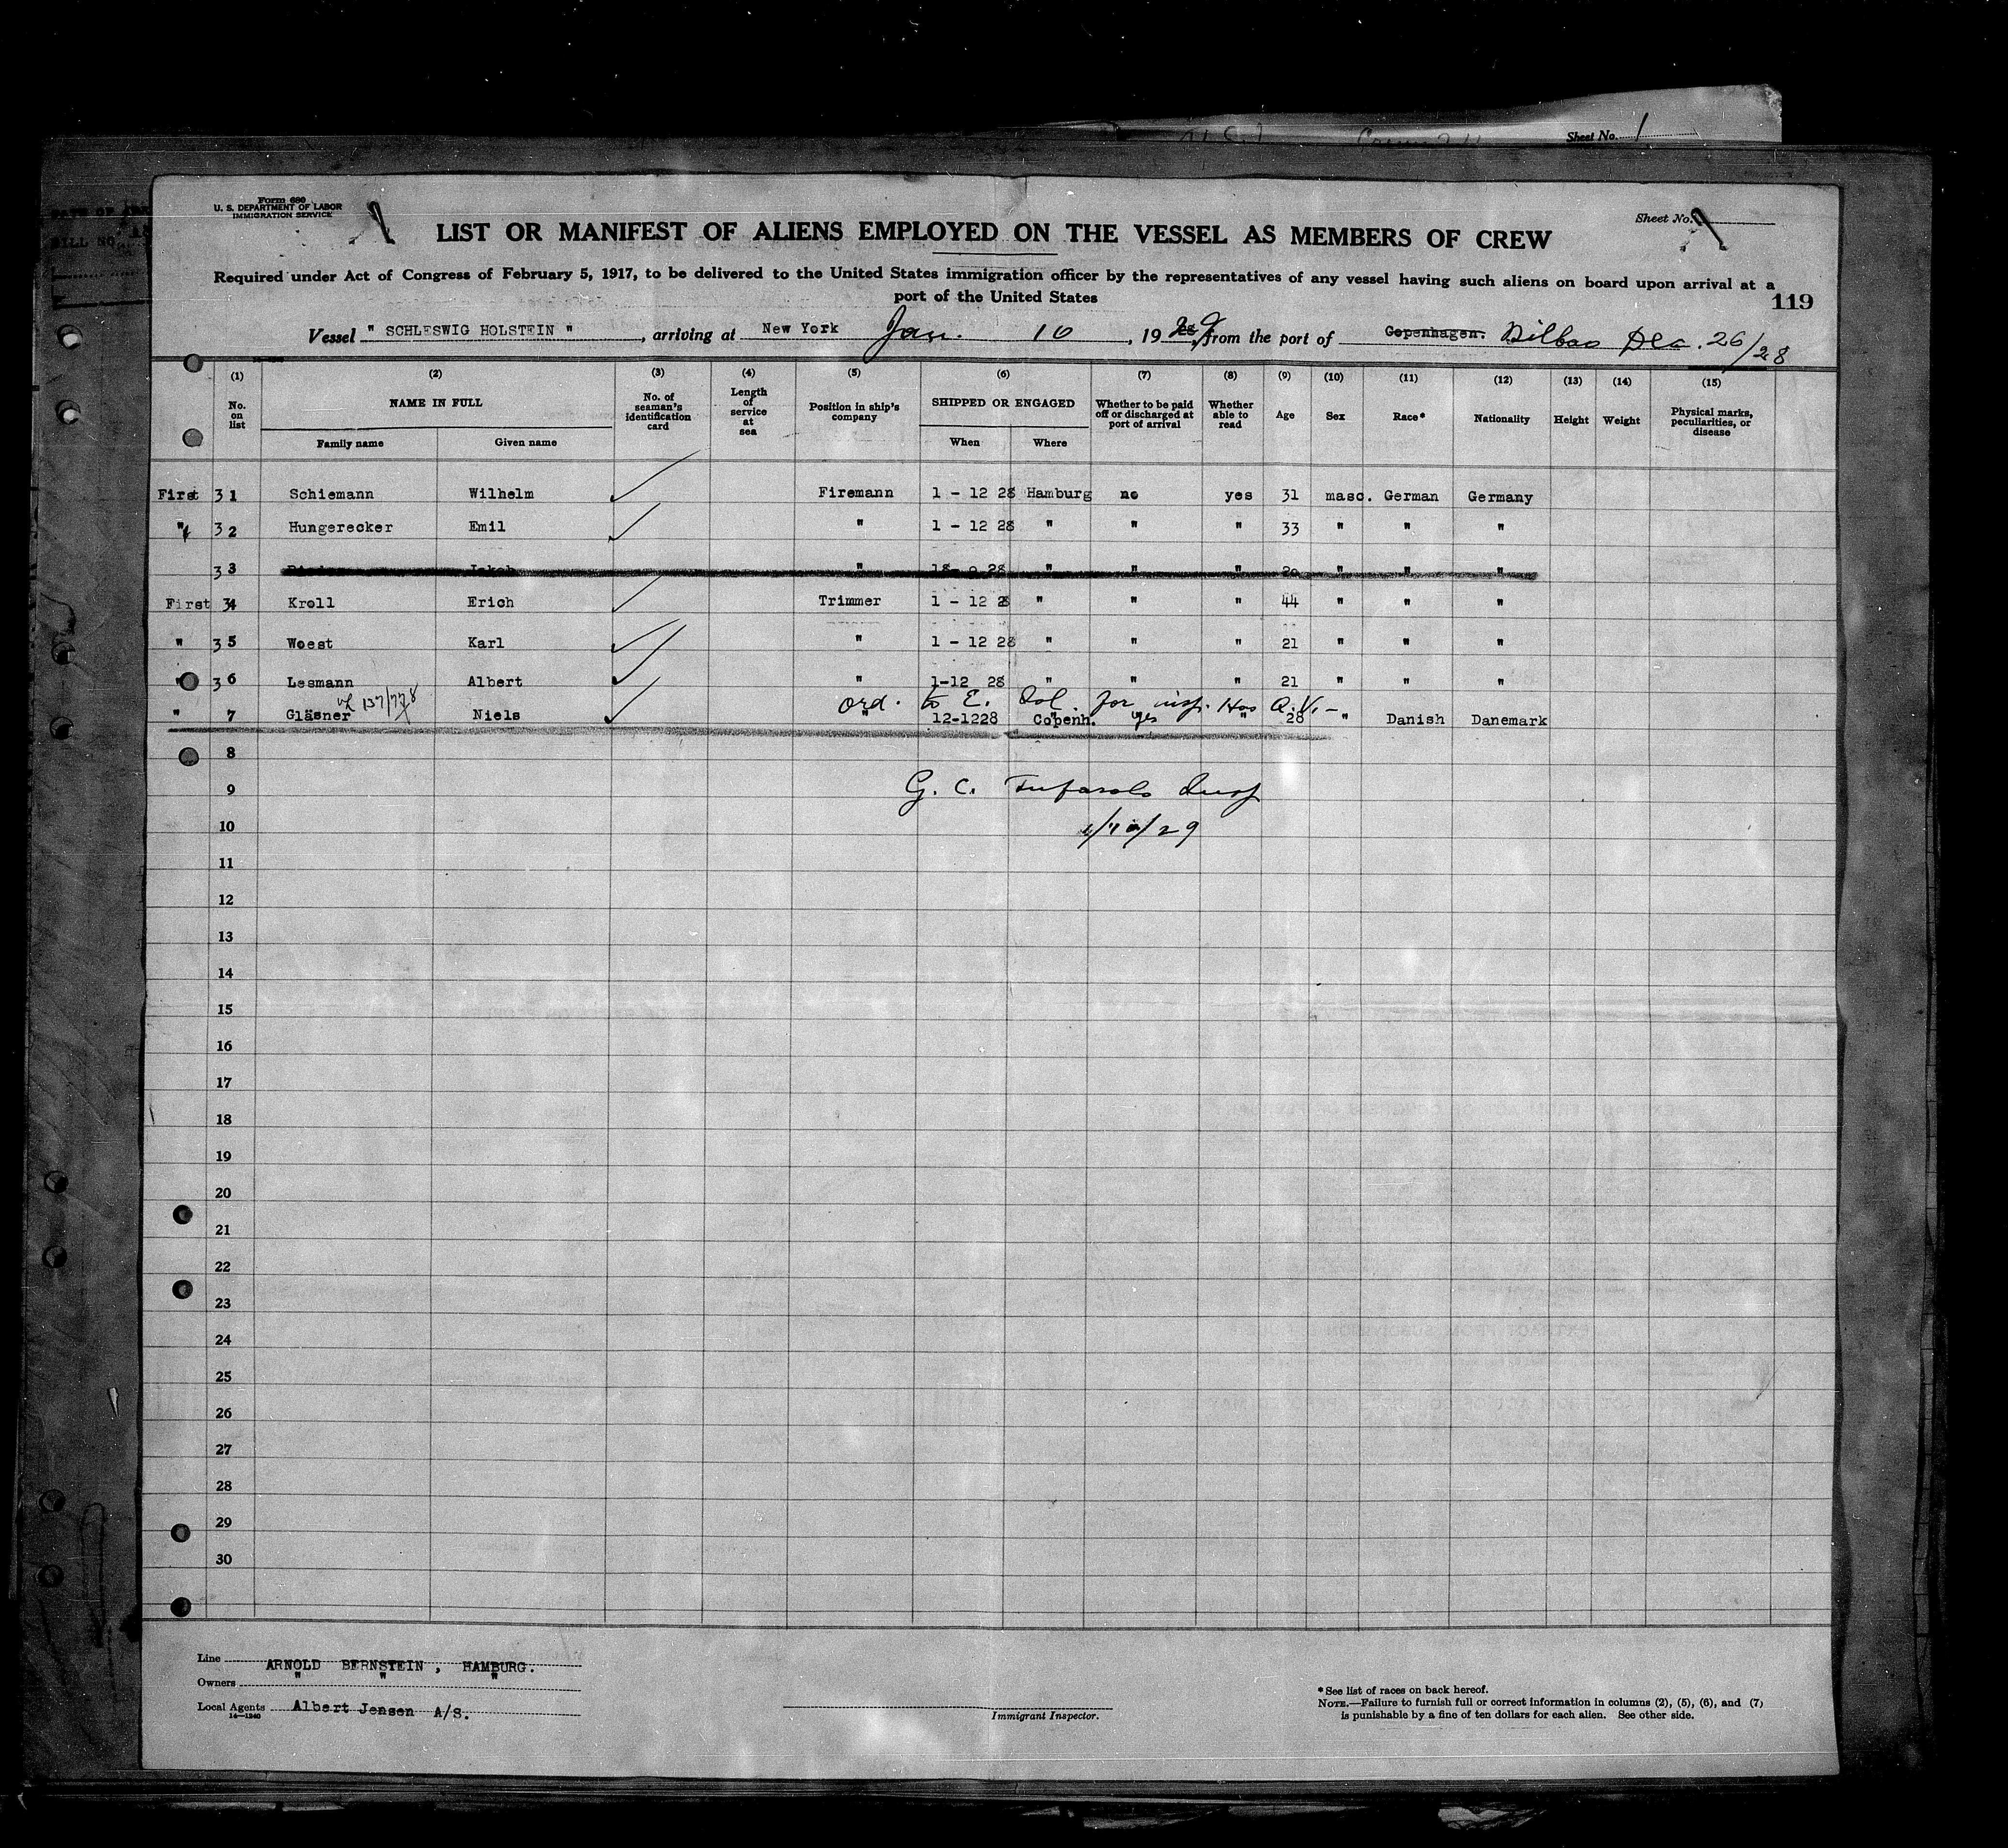 Sheet No. 1
Form 680
U. S. DEPARTMENT OF LABOR
IMMIGRATION SERVICE
Sheet No.
LIST OR MANIFEST OF ALIENS EMPLOYED ON THE VESSEL AS MEMBERS OF CREW
Required under Act of Congress of February 5, 1917, to be delivered to the United States immigration officer by the representatives of any vessel having such aliens on board upon arrival at a
port of the United States
119
Vessel " SCHLESWIG HOLSTEIN ", arriving at New York Jan. 10, 1929, from the port of Copenhagen. Bilbao Dec. 26/28
(1) (2) (3) (4) (5) (6) (7) (8) (9) (10) (11) (12) (13) (14) (15)
No. on list NAME IN FULL No. of seaman's identification card Length of service at sea Position in ship's company SHIPPED OR ENGAGED Whether to be paid off or discharged at port of arrival Whether able to read Age Sex Race* Nationality Height Weight Physical marks, peculiarities, or disease
Family name Given name When Where
First 31 Schiemann Wilhelm Firemann 1 - 12 28 Hamburg no yes 31 masc. German Germany
" 32 Hungerecker Emil " 1 - 12 28 " " " 33 " " "
33 " 28 " " " " " "
First 34 Kroll Erich Trimmer 1 - 12 28 " " " 44 " " "
" 35 Woest Karl " 1 - 12 28 " " " 21 " " "
" 36 Lesmann Albert " 1-12 28 " " " 21 " " "
ord. to E. Isl. for insp. Has
" 7 Gläsner Niels " 12-1228 Copenh. yes " 28 " Danish Danemark
8
9
G. C.
10
1/10/29
11
12
13
14
15
16
17
18
19
20
21
22
23
24
25
26
27
28
29
30
Line ARNOLD BERNSTEIN, HAMBURG.
Owners " " "
Local Agents Albert Jensen A/S.
14—1240
Immigrant Inspector.
* See list of races on back hereof.
NOTE.—Failure to furnish full or correct information in columns (2), (5), (6), and (7)
is punishable by a fine of ten dollars for each alien. See other side.